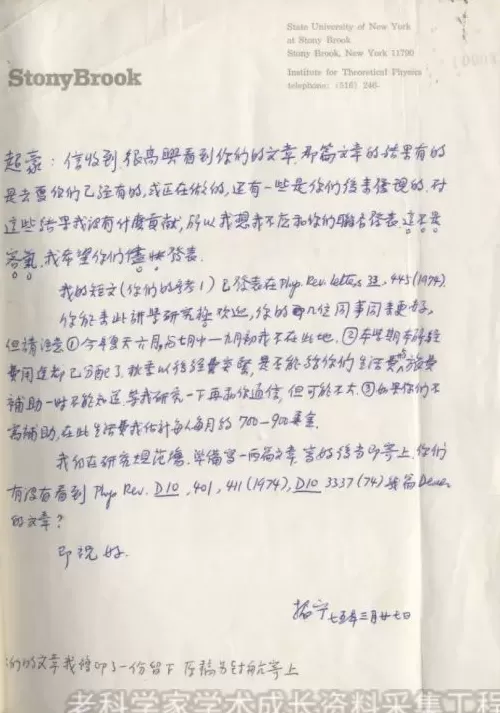 State University of New York
at Stony Brook
Stony Brook, New York 11790
StonyBrook
Institute for Theoretical Physics
telephone: (516) 246-
超豪：信收到.很高興看到你们的文章.那篇文章的结果有的
是去夏你们已经有的,或正在做的,还有一些是你们後来發现的.对
这些结果我没有什麽貢献,所以我想我不应和你们聯合發表.这不是
客氣.我希望你们儘快發表.
我的短文(你们的参考1)已發表在Phys. Rev. letters, 33, 445 (1974).
你能来此講学研究極欢迎,你的那几位同事同来更好.
但請注意①今年夏天六月底七月中—九月初我不在此地.②本学期本所经
費用途都已分配了.秋季以後经費, 是否能给你们生活費或旅費
補助一时不能知道.等我研究一下再和你通信,但可能不大.③如果你们不
需補助,在此生活費我估计每人每月约700—900美金.
我们在研究規范場.準備写一两篇文章.寫好後当即寄上.你们
有没有看到 Phys Rev. D10, 401, 411 (1974), D10 3337 (74) 幾篇
的文章?
即祝 好.
振宁 七五年三月廿七日
你们的文章我複印了一份留下 原稿另封航寄上
老科学家学术成长资料采集工程